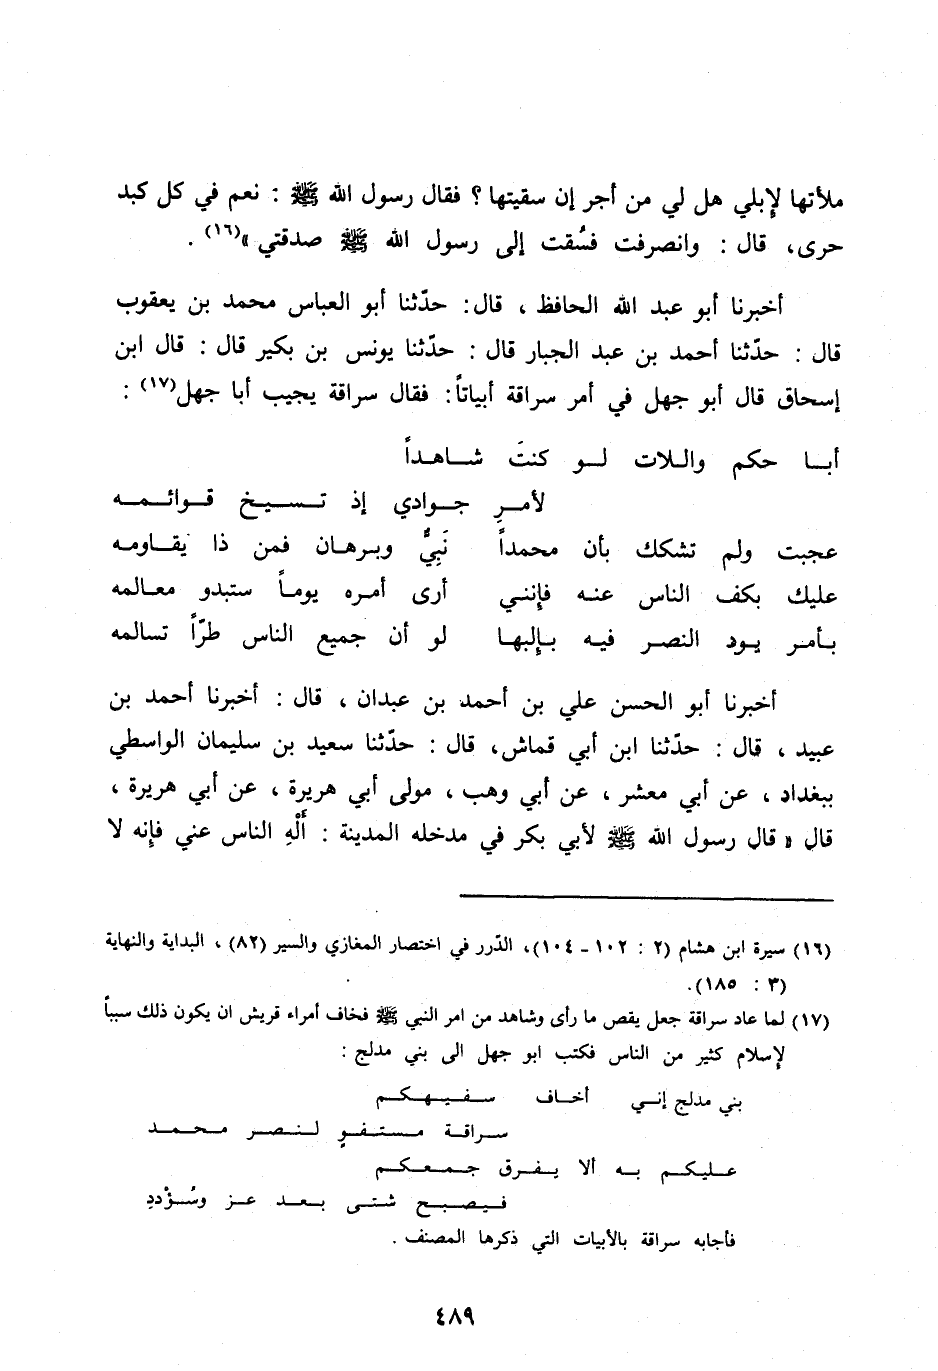 ملأتها لإبلي هل لي من أجر إن سقيتها ؟ فقال رسول الله ﷺ : نعم في كل كبد
حرى، قال : وانصرفت فسُقت إلى رسول الله ﷺ صدقتي »(١٦) .
أخبرنا أبو عبد الله الحافظ ، قال: حدّثنا أبو العباس محمد بن يعقوب
قال : حدّثنا أحمد بن عبد الجبار قال : حدّثنا يونس بن بكير قال : قال ابن
إسحاق قال أبو جهل في أمر سراقة أبياتاً: فقال سراقة يجيب أبا جهل(١٧) :
أبـا حكم واللات لـو كنتَ شـاهـداً
لأمـرِ جـوادي إذ تـسـيـخ قـوائـمـه
عجبت ولم تشكك بأن محمداً نَبِيٌّ وبرهان فمن ذا يقـاومـه
عليك بكف الناس عنـه فإنني أرى أمـره يومـاً ستبدو معـالمه
بـأمـر يـود النصـر فيـه بـإلبهـا لو أن جميع الناس طرّاً تسالمه
أخبرنا أبو الحسن علي بن أحمد بن عبدان ، قال : أخبرنا أحمد بن
عبيد ، قال : حدّثنا ابن أبي قماش، قال : حدّثنا سعيد بن سليمان الواسطي
ببغداد ، عن أبي معشر ، عن أبي وهب ، مولى أبي هريرة ، عن أبي هريرة ،
قال « قال رسول الله ﷺ لأبي بكر في مدخله المدينة : أَلْهِ الناس عني فإنه لا
(١٦) سيرة ابن هشام (٢ : ١٠٢ - ١٠٤)، الدّرر في اختصار المغازي والسير (٨٢) ، البداية والنهاية
(٣ : ١٨٥).
(١٧) لما عاد سراقة جعل يقص ما رأى وشاهد من امر النبي ﷺ فخاف أمراء قريش ان يكون ذلك سبباً
لإسلام كثير من الناس فكتب ابو جهل الى بني مدلج :
بني مدلج إنـي أخـاف سـفـيـهـكـم
سـراقـة مـسـتـفـوٍ لـنـصـر مـحـمـد
عـلـيـكـم بـه ألا يـفـرق جـمـعـكـم
فـيـصـبـح شـتـى بـعـد عـز وسُـؤْددِ
فأجابه سراقة بالأبيات التي ذكرها المصنف .
٤٨٩